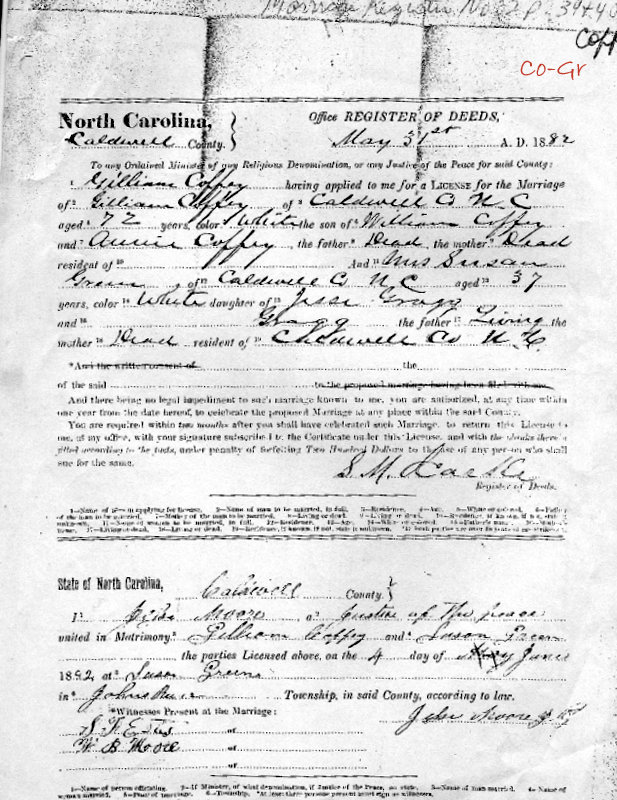 Register No
Copy
Co-Gr
North Carolina, Office REGISTER OF DEEDS,
Caldwell County. } May 31st A. D. 1882
To any Ordained Minister of any Religious Denomination, or any Justice of the Peace for said County:
Gilliam Coffey having applied to me for a LICENSE for the Marriage
of Gilliam Coffey of Caldwell Co N C
aged 72 years, color White the son of William Coffey
and Annie Coffey, the father Dead, the mother Dead
resident of And Mrs Susan
Green of Caldwell Co N C aged 37
years, color White daughter of Jesse Gragg
and Gragg the father Living the
mother Dead resident of Caldwell Co N C.
*And the written consent of the
of the said to the proposed marriage having been filed with me.
And there being no legal impediment to such marriage known to me, you are authorized, at any time within
one year from the date hereof, to celebrate the proposed Marriage at any place within the said County.
You are required within two months after you shall have celebrated such Marriage, to return this License to
me, at my office, with your signature subscribed to the Certificate under this License, and with the blanks therein
filled according to the facts, under penalty of forfeiting Two Hundred Dollars to the use of any person who shall
sue for the same.
S. M.
Register of Deeds.
State of North Carolina, Caldwell County. }
I, Moore a Justice of the peace
united in Matrimony Gilliam Coffey and Susan Green
the parties Licensed above, on the 4 day of May June
1882 at Susan Greens
in Township, in said County, according to law.
*Witnesses Present at the Marriage: Moore
S. F. Estes of
W. B Moore of
of